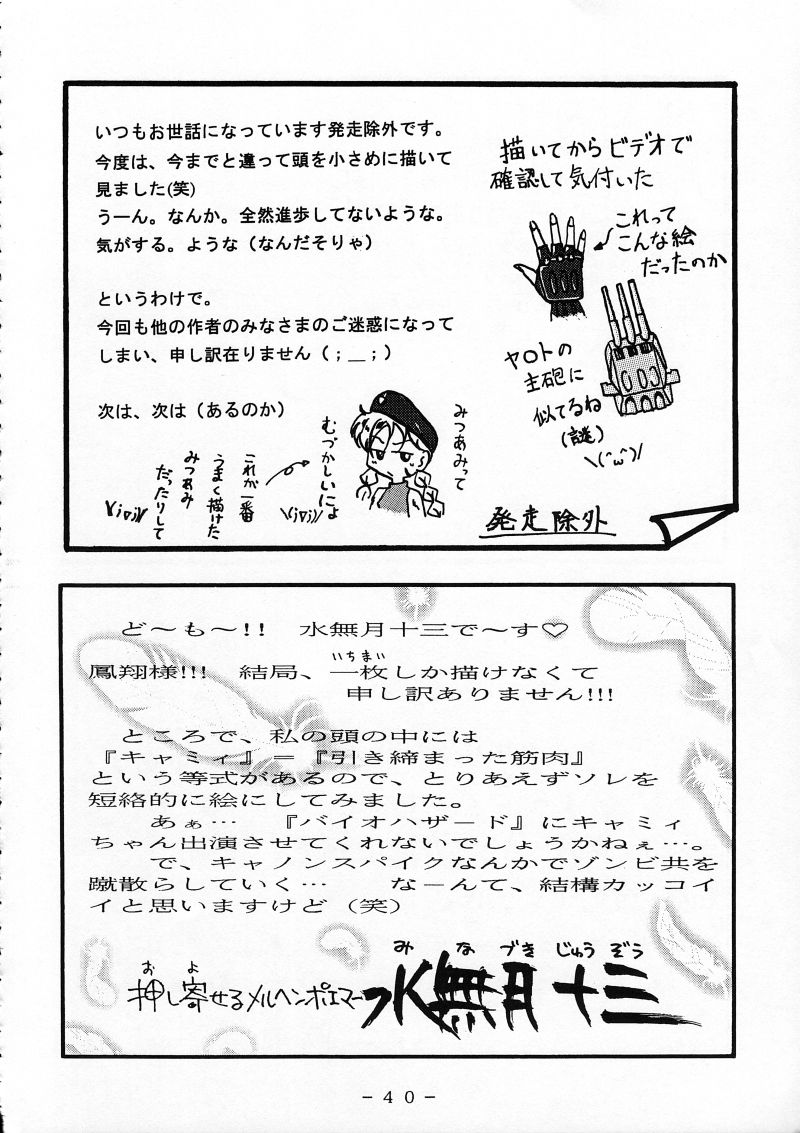 いつもお世話になっています発走除外です。
今度は、今までと違って頭を小さめに描いて
見ました(笑)
うーん。なんか。全然進歩してないような。
気がする。ような（なんだそりゃ）
というわけで。
今回も他の作者のみなさまのご迷惑になって
しまい、申し訳在りません（；＿；）
次は、次は（あるのか）
描いてからビデオで
確認して気付いた
これって
こんな絵
だったのか
ヤマトの
主砲に
似てるね
(謎)
\(^ω^)/
みつあみって
むづかしいにょ
\(i▽i)/
これが一番
うまく描けた
みつあみ
だったりして
Y(i▽i)Y
発走除外
ど～も～!!　水無月十三で～す♡
鳳翔様!!!　結局、一枚しか描けなくて
いちまい
申し訳ありません!!!
ところで、私の頭の中には
『キャミィ』＝『引き締まった筋肉』
という等式があるので、とりあえずソレを
短絡的に絵にしてみました。
あぁ…　『バイオハザード』にキャミィ
ちゃん出演させてくれないでしょうかねぇ…。
で、キャノンスパイクなんかでゾンビ共を
蹴散らしていく…　なーんて、結構カッコイ
イと思いますけど（笑）
押し寄せるメルヘンポエマー水無月十三
お よ み な づき じゅう ぞう
- 40 -